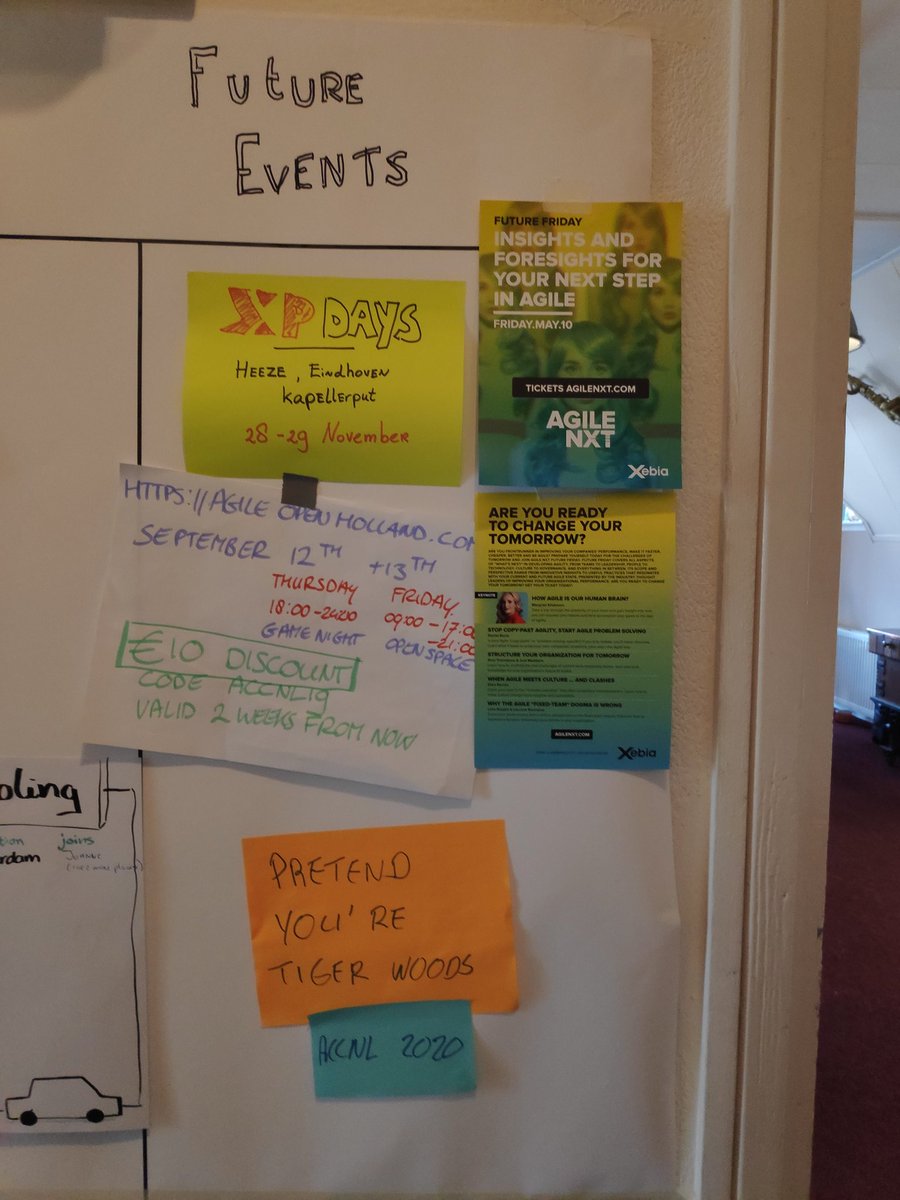 Future
Events
XP DAYS
HEEZE, Eindhoven
Kapellerput
28-29 November
FUTURE FRIDAY
INSIGHTS AND
FORESIGHTS FOR
YOUR NEXT STEP
IN AGILE
FRIDAY.MAY.10
TICKETS AGILENXT.COM
AGILE
NXT
Xebia
HTTPS://AGILE OPENHOLLAND.COM
SEPTEMBER 12TH +13TH
THURSDAY FRIDAY
18:00-2400 09:00-17:00
-21:00
GAME NIGHT OPEN SPACE
€10 DISCOUNT
CODE ACCNL19
VALID 2 WEEKS FROM NOW
ARE YOU READY
TO CHANGE YOUR
TOMORROW?
KEYNOTE
HOW AGILE IS OUR HUMAN BRAIN?
STOP COPY-PAST AGILITY, START AGILE PROBLEM SOLVING
STRUCTURE YOUR ORGANIZATION FOR TOMORROW
WHEN AGILE MEETS CULTURE ... AND CLASHES
WHY THE AGILE "FIXED-TEAM" DOGMA IS WRONG
AGILENXT.COM
Xebia
oling
tion joins
rdam
PRETEND
YOU'RE
TIGER WOODS
ACCNL 2020